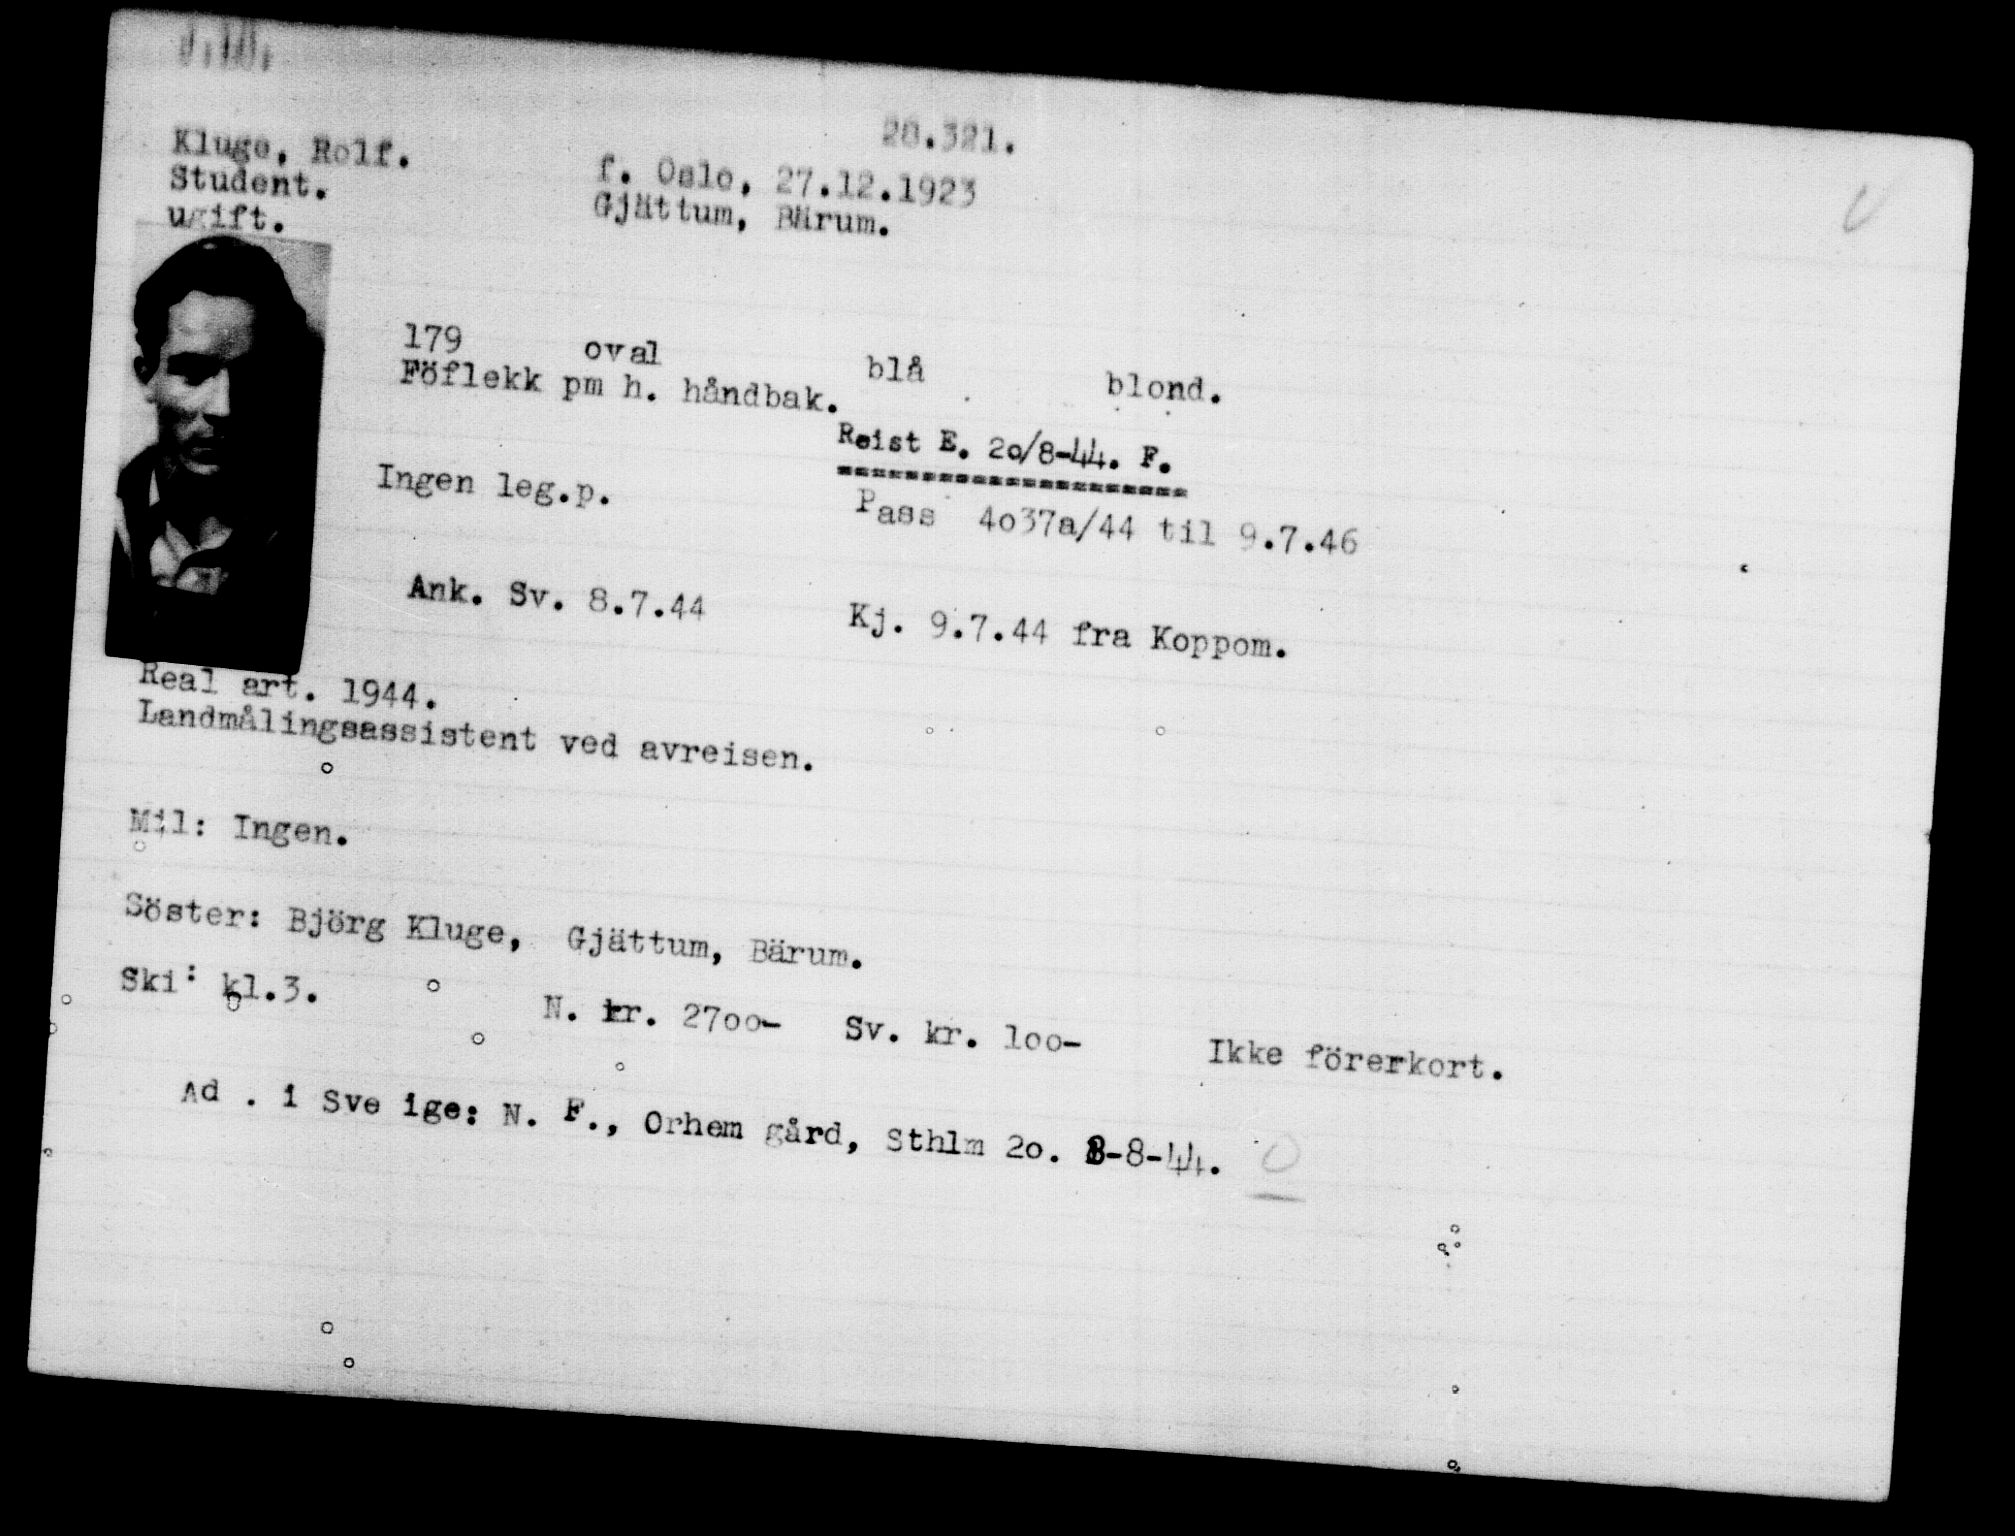 28.321.
Kluge, Rolf. f. Oslo, 27.12.1923
Student. Gjättum, Bärum.
ugift.
179 oval blå blond.
Föflekk pm h. håndbak.
Reist E. 2o/8-44. F.
Ingen leg.p. Pass 4o37a/44 til 9.7.46
Ank. Sv. 8.7.44 Kj. 9.7.44 fra Koppom.
Real art. 1944.
Landmålingsassistent ved avreisen.
Mil: Ingen.
Söster: Björg Kluge, Gjättum, Bärum.
Ski: kl.3. N. kr. 27oo- Sv. kr. loo- Ikke förerkort.
Ad . i Sve ige: N. F., Orhem gård, Sthlm 2o. 8-8-44.